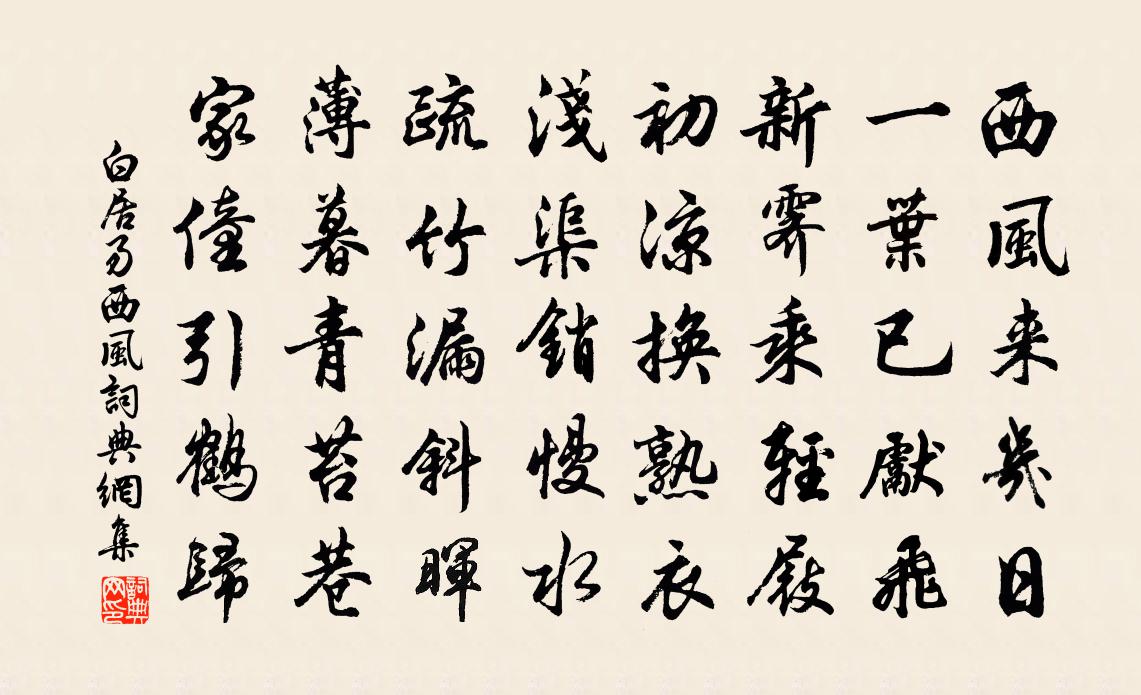 西風来幾日
一葉已獻飛
新霽乘輕屐
初涼換熟衣
淺渠銷慢水
疏竹漏斜暉
薄暮青苔巷
家僮引鶴歸
白居易西風詞典網集
詞典网印